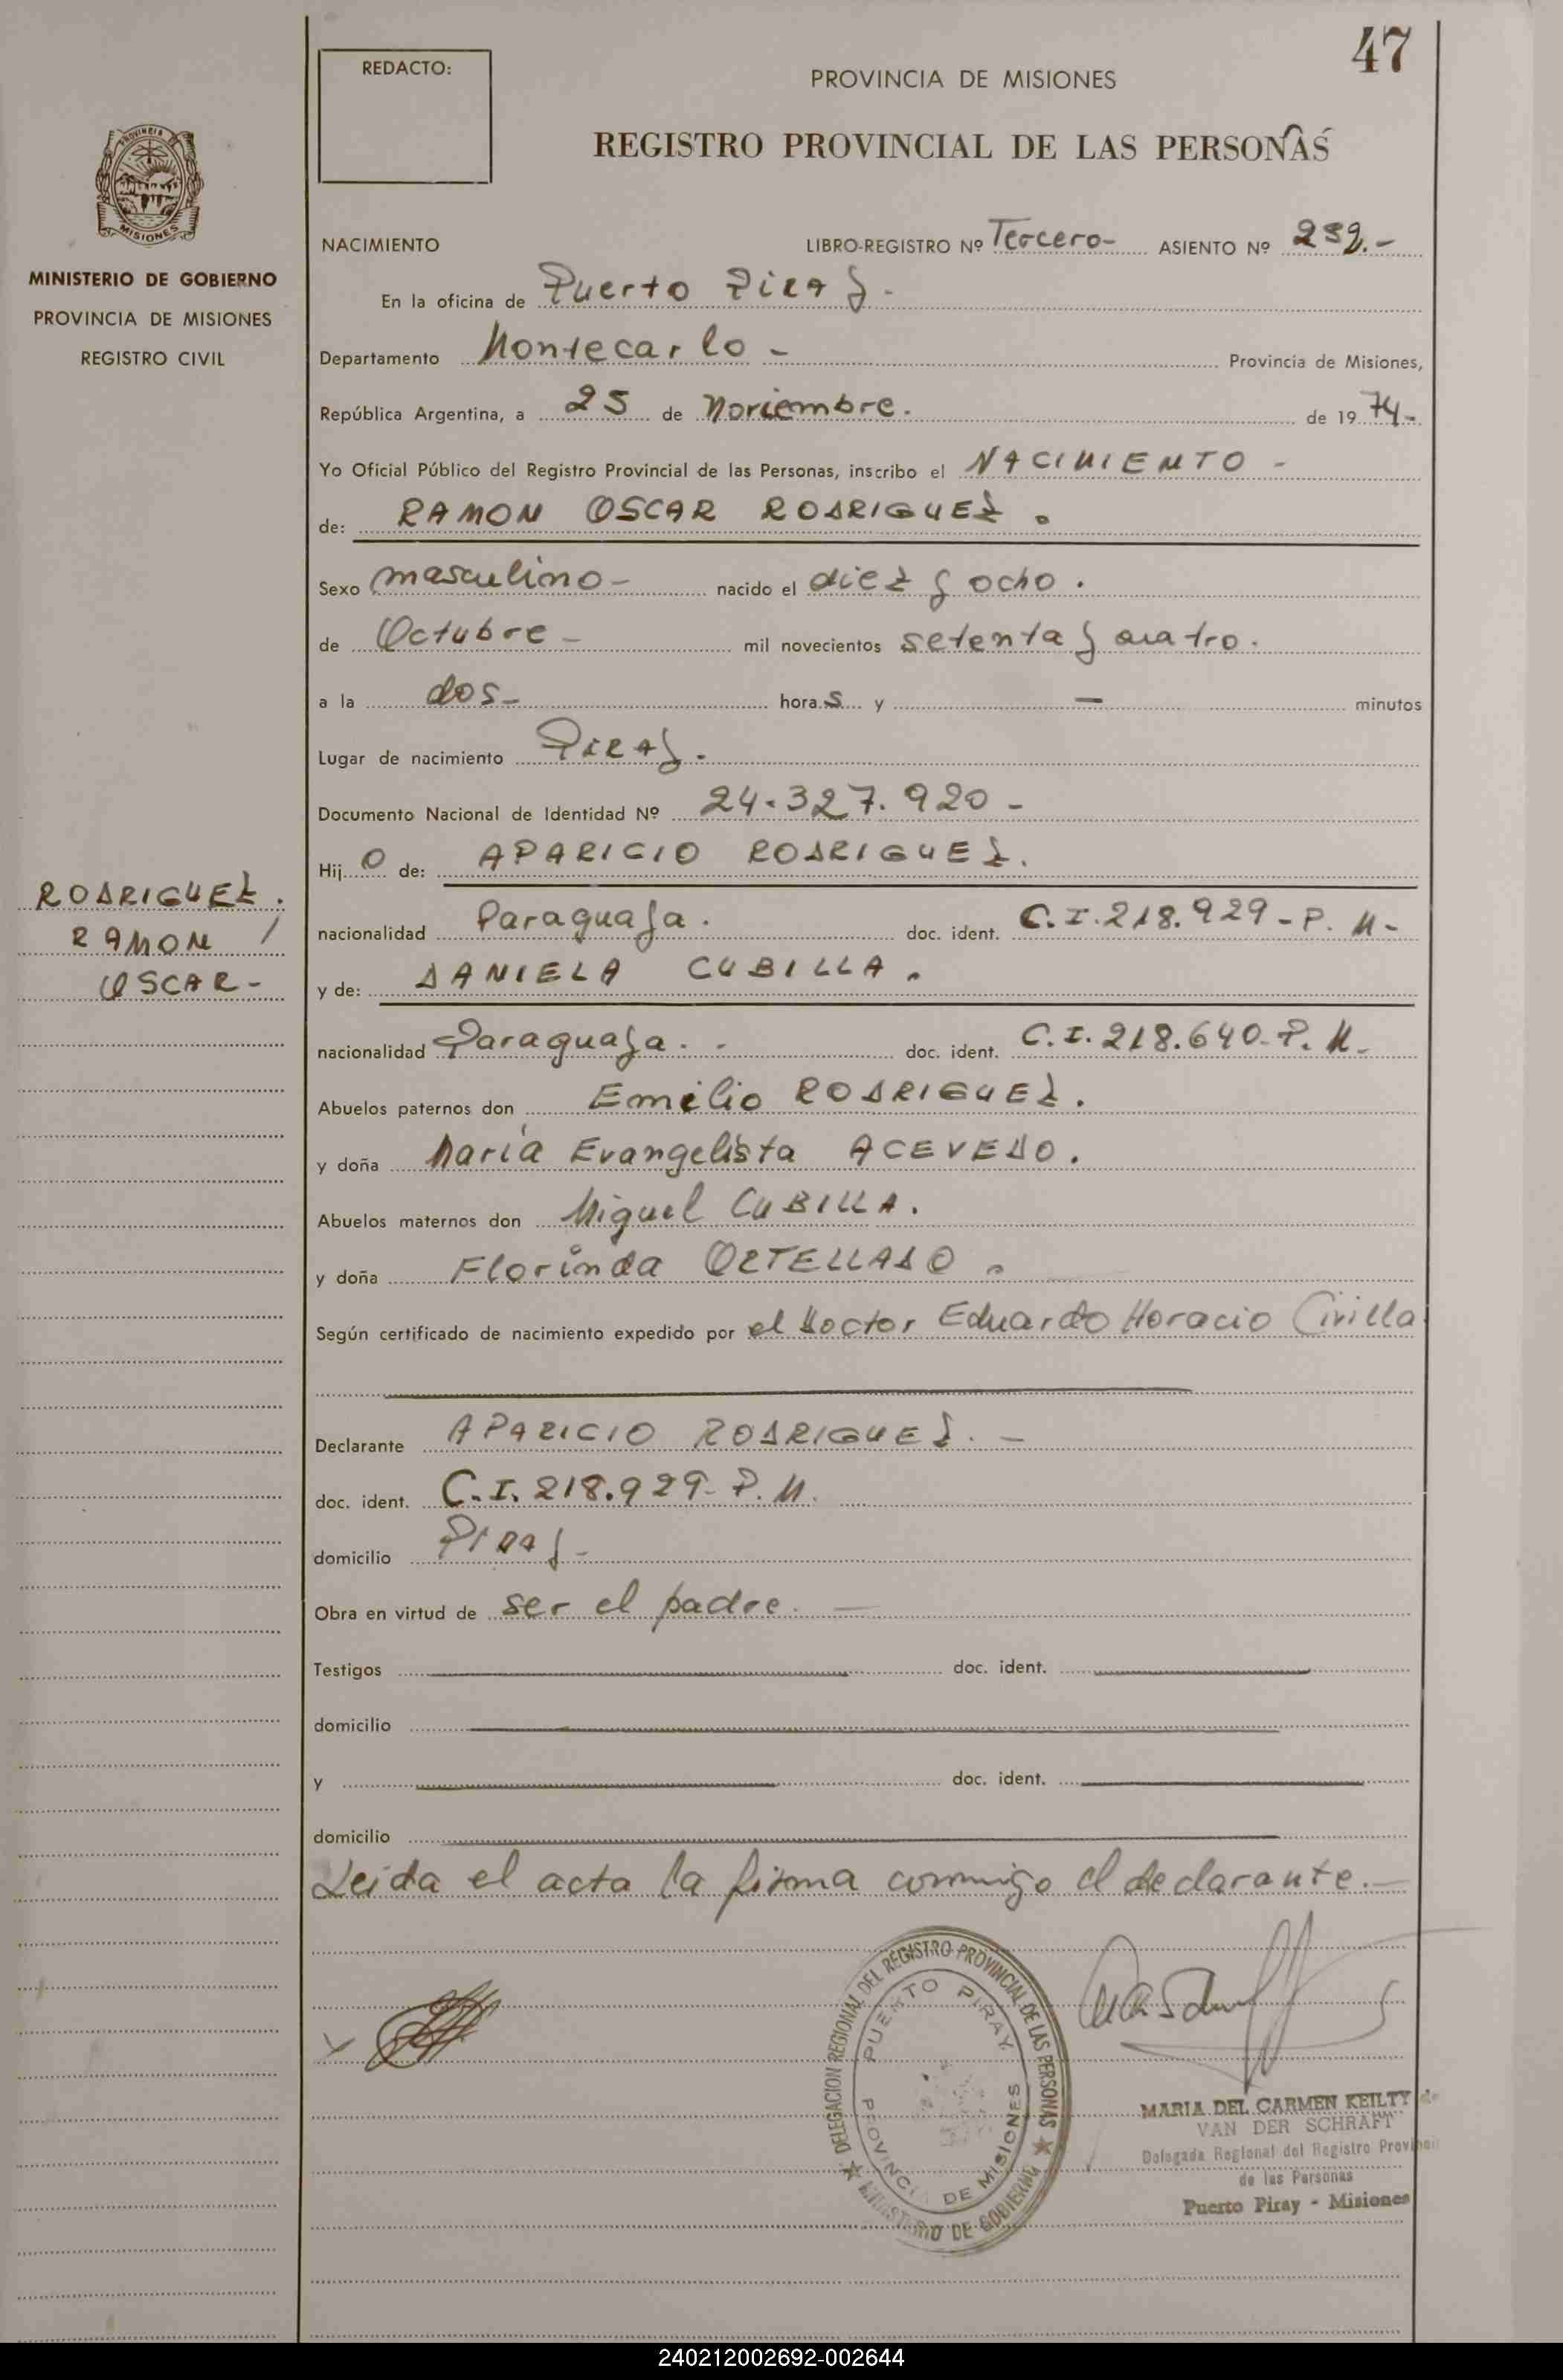 47
REDACTO:
PROVINCIA DE MISIONES
REGISTRO PROVINCIAL DE LAS PERSONAS
PROVINCIA
MISIONES
MINISTERIO DE GOBIERNO
PROVINCIA DE MISIONES
REGISTRO CIVIL
NACIMIENTO LIBRO-REGISTRO Nº Tercero- ASIENTO Nº 232.-
En la oficina de Puerto Piray -
Departamento Montecarlo - Provincia de Misiones,
República Argentina, a 25 de Noviembre. de 1974-
Yo Oficial Público del Registro Provincial de las Personas, inscribo el NACIMIENTO -
de: RAMON OSCAR RODRIGUEZ.
Sexo masculino- nacido el diez y ocho.
de Octubre - mil novecientos setenta y cuatro.
a la dos- horas y - minutos
Lugar de nacimiento Piray.
Documento Nacional de Identidad Nº 24.327.920 -
Hijo de: APARICIO RODRIGUEZ.
RODRIGUEZ.
RAMON /
OSCAR -
nacionalidad Paraguaya. doc. ident. C.I. 218.929 - P. M-
y de: DANIELA CUBILLA.
nacionalidad Paraguaya. - doc. ident. C.I. 218.640- P. M-
Abuelos paternos don Emilio RODRIGUEZ.
y doña María Evangelista ACEVEDO.
Abuelos maternos don Miguel CUBILLA.
y doña Florinda ORTELLADO.
Según certificado de nacimiento expedido por el Doctor Eduardo Horacio Civilla
Declarante APARICIO RODRIGUEZ. -
doc. ident. C.I. 218.929- P. M.
domicilio Piray -
Obra en virtud de ser el padre. -
Testigos doc. ident.
domicilio
y doc. ident.
domicilio
Leida el acta la firma conmigo el declarante. -
DELEGACION REGIONAL DEL REGISTRO PROVINCIAL DE LAS PERSONAS
MINISTERIO DE GOBIERNO
PUERTO PIRAY
PROVINCIA DE MISIONES
MARIA DEL CARMEN KEILTY de
VAN DER SCHRAFT
Delegada Regional del Registro Provincial
de las Personas
Puerto Piray - Misiones
240212002692-002644